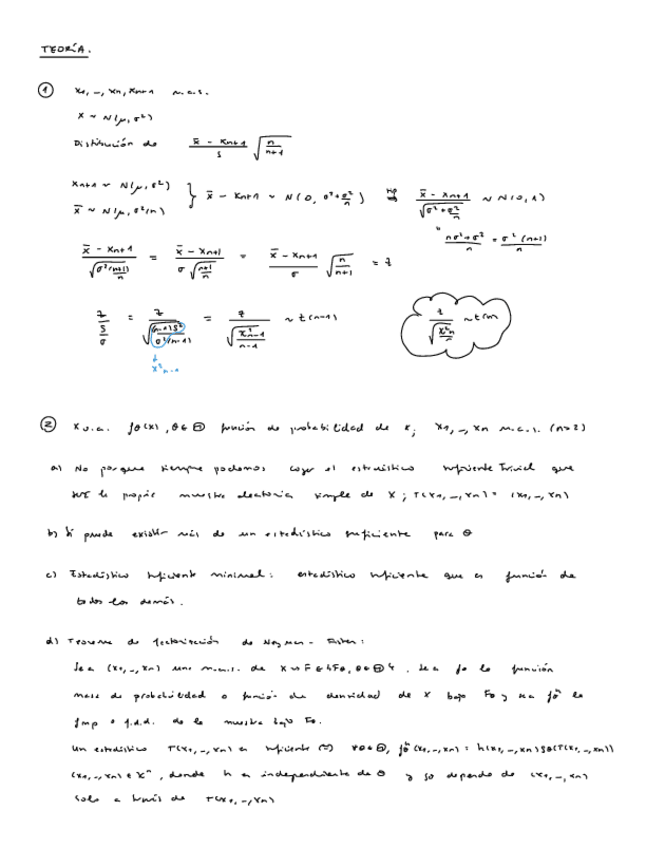 TEORÍA.
① x₁, –, xₙ, xₙ₊₁ m.a.s.
X ~ N(μ, σ²)
Distribución de (x̄ - xₙ₊₁)/s √(n/(n+1))
xₙ₊₁ ~ N(μ, σ²)
x̄ ~ N(μ, σ²/n) } x̄ - xₙ₊₁ ~ N(0, σ² + σ²/n) ⇒ (x̄ - xₙ₊₁)/√(σ² + σ²/n) ~ N(0,1)
(nσ² + σ²)/n = σ²(n+1)/n
(x̄ - xₙ₊₁)/√(σ²(n+1)/n) = (x̄ - xₙ₊₁)/(σ √((n+1)/n)) = (x̄ - xₙ₊₁)/σ √(n/(n+1)) = z
z/(s/σ) = z/√((n-1)s²/(σ²(n-1))) = z/√(χ²ₙ₋₁/(n-1)) ~ t(n-1)
z/√(χ²ₙ/n) ~ t(n)
χ²ₙ₋₁
② X v.a. fθ(x), θ ∈ Θ función de probabilidad de x; x₁, –, xₙ m.a.s. (n>2)
a) No porque siempre podemos coger el estadístico suficiente trivial que
es la propia muestra aleatoria simple de X; T(x₁, –, xₙ) = (x₁, –, xₙ)
b) Sí puede existir más de un estadístico suficiente para θ
c) Estadístico suficiente minimal: estadístico suficiente que es función de
todos los demás.
d) Teorema de factorización de Neyman - Fisher:
Sea (x₁, –, xₙ) una m.a.s. de X ~ F ∈ {Fθ, θ ∈ Θ}. Sea fθ la función
masa de probabilidad o función de densidad de X bajo Fθ y sea fθⁿ la
fmp o f.d.d. de la muestra bajo Fθ.
Un estadístico T(x₁, –, xₙ) es suficiente ⇔ ∀θ ∈ Θ, fθⁿ(x₁, –, xₙ) = h(x₁, –, xₙ) gθ(T(x₁, –, xₙ))
(x₁, –, xₙ) ∈ χⁿ, donde h es independiente de θ y gθ depende de (x₁, –, xₙ)
solo a través de T(x₁, –, xₙ)